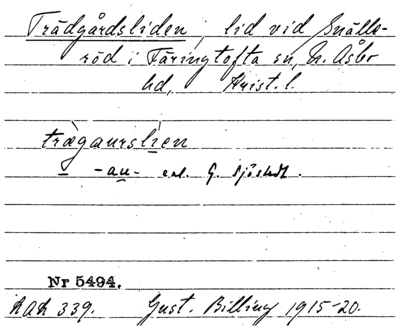 Trädgårdsliden, lid vid Snälle-
röd i Färingtofta sn, N. Åsbo
hd, Krist. l.
trægaurslien
-au- enl. G. Sjöstedt.
Nr 5494.
AOH 339. Gust. Billing 1915-20.